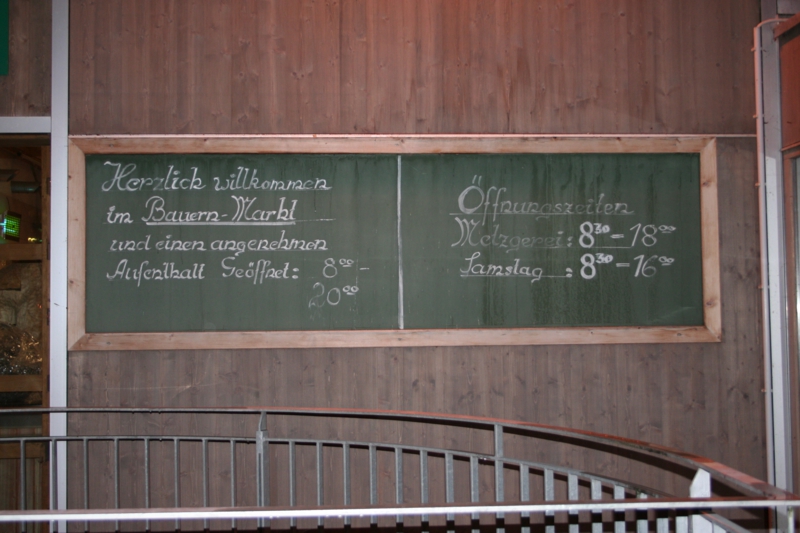 Herzlich willkommen
im Bauern-Markt
und einen angenehmen
Aufenthalt Geöffnet: 8⁰⁰ -
20⁰⁰
Öffnungszeiten
Metzgerei: 8³⁰ - 18⁰⁰
Samstag : 8³⁰ - 16⁰⁰